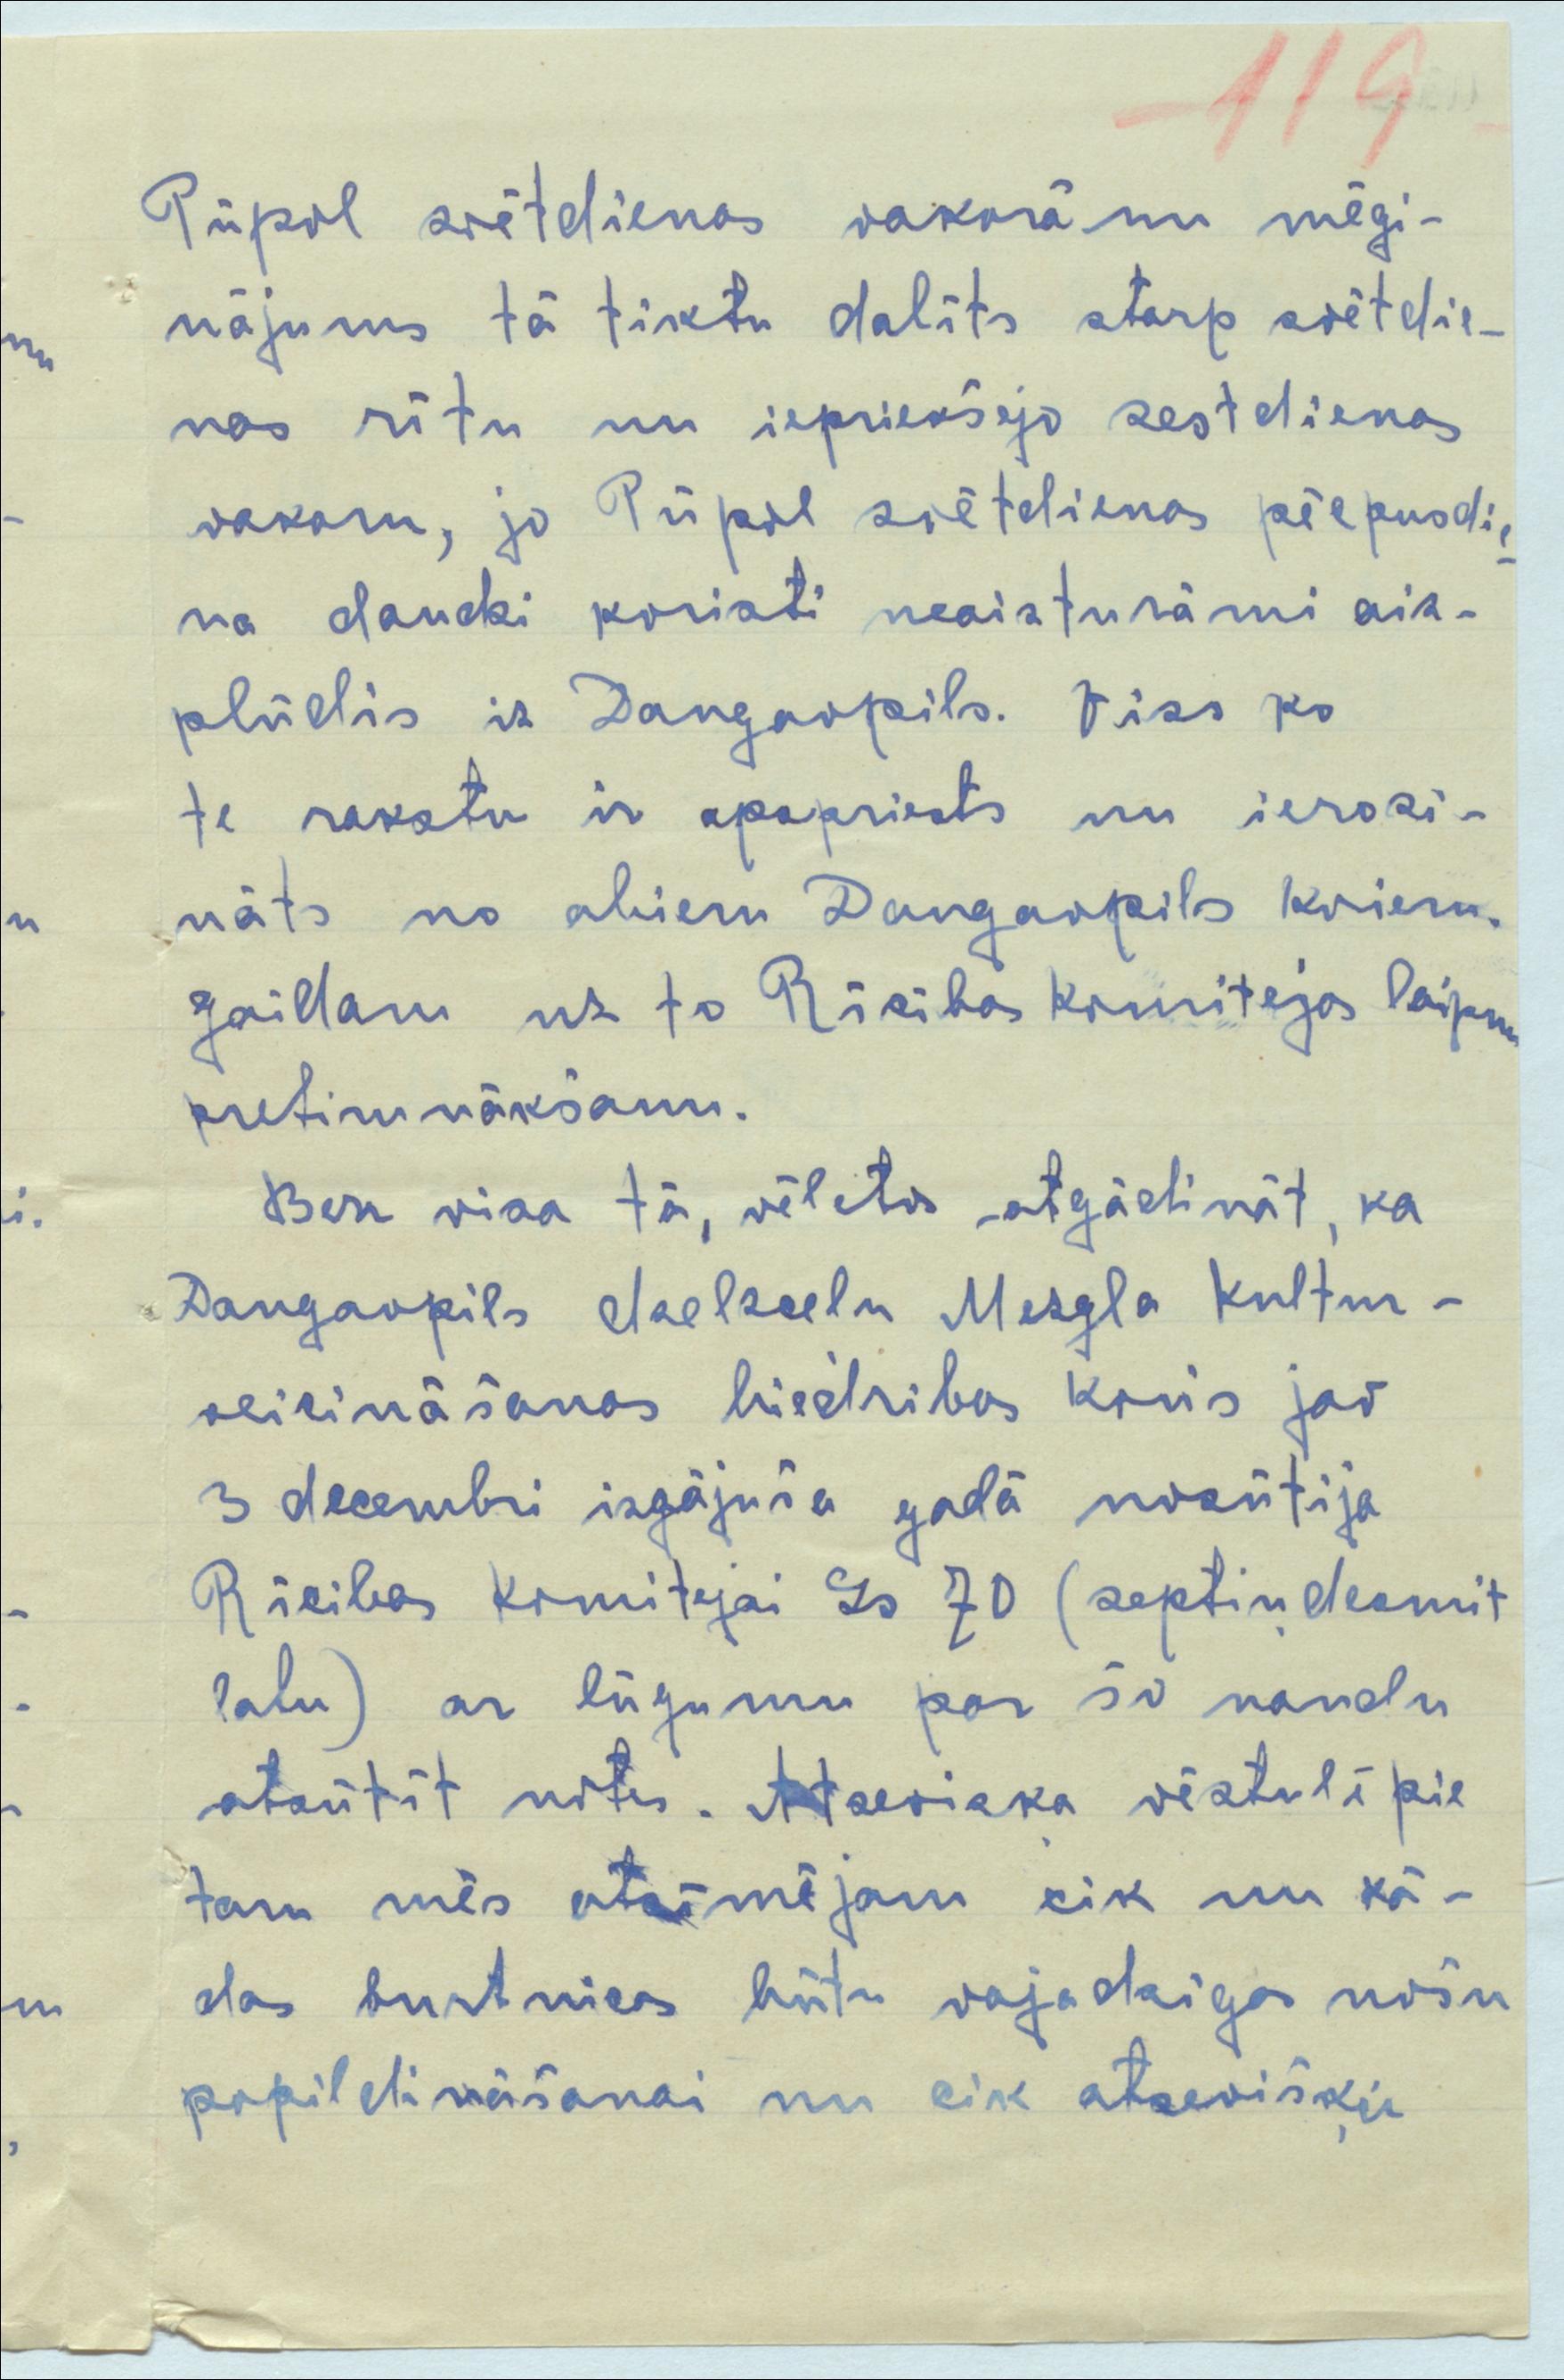 119
Pūpol svētdienas vakarā un mēgi-
nājums tā tiktu dalīts starp svētdie-
nas rītu un iepriekšejo sestdienas
vakaru, jo Pūpol svētdienas pēcpusdie-
na daudzi koristi neaizturāmi aiz-
plūdīs iz Daugavpils. Viss ko
te rakstu ir apspriests un ierosi-
nāts no abiem Daugavpils koriem.
gaidam uz to Rīcibas Komitejas laipnu
pretimnākšanu.
Bez visa tā, vēletos atgādināt, ka
Daugavpils dzelzceļu Mezgla Kultur-
veicināšanas biedribas Koris jav
3 decembri izgājuša gadā nosūtija
Rīcibas Komitejai Ls 70 (septiņdesmit
latu) ar lūgumu par šo naudu
atsūtīt notis. Atseviska vēstulē pie
tam mēs atzīmējam cik un kā-
das burtnicas būtu vajadzigas nošu
popildināšanai un cik atsevišķie